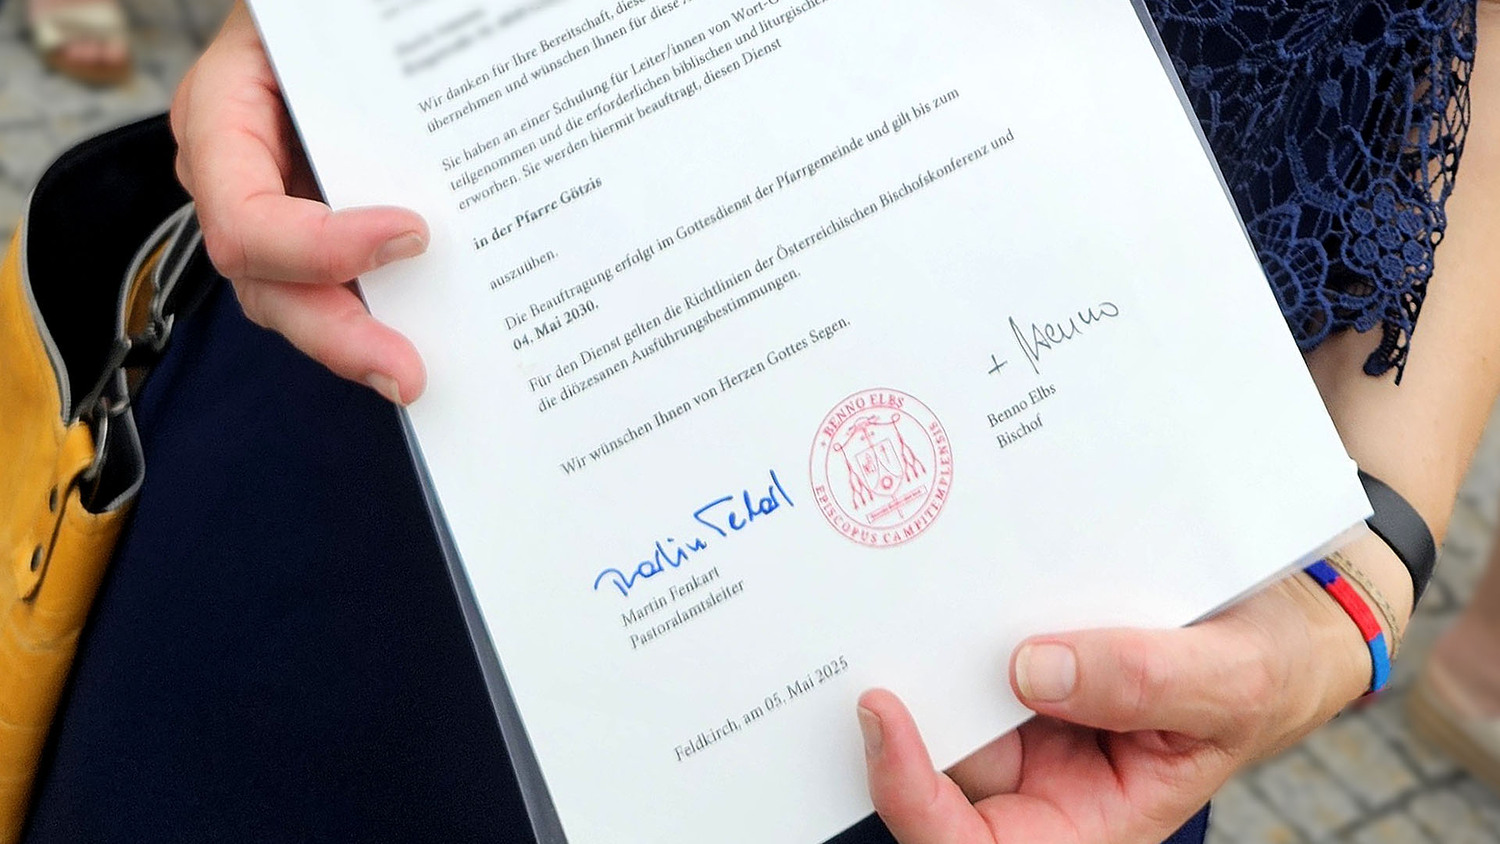 Wir danken für Ihre Bereitschaft, diese
übernehmen und wünschen Ihnen für diese
Sie haben an einer Schulung für Leiter/innen von Wort-G
teilgenommen und die erforderlichen biblischen und liturgischen
erworben. Sie werden hiermit beauftragt, diesen Dienst
in der Pfarre Götzis
auszuüben.
Die Beauftragung erfolgt im Gottesdienst der Pfarrgemeinde und gilt bis zum
04. Mai 2030.
Für den Dienst gelten die Richtlinien der Österreichischen Bischofskonferenz und
die diözesanen Ausführungsbestimmungen.
Wir wünschen Ihnen von Herzen Gottes Segen.
+ Benno
Benno Elbs
Bischof
BENNO ELBS
EPISCOPUS CAMPITEMPLIENSIS
Martin Fenkart
Martin Fenkart
Pastoralamtsleiter
Feldkirch, am 05. Mai 2025